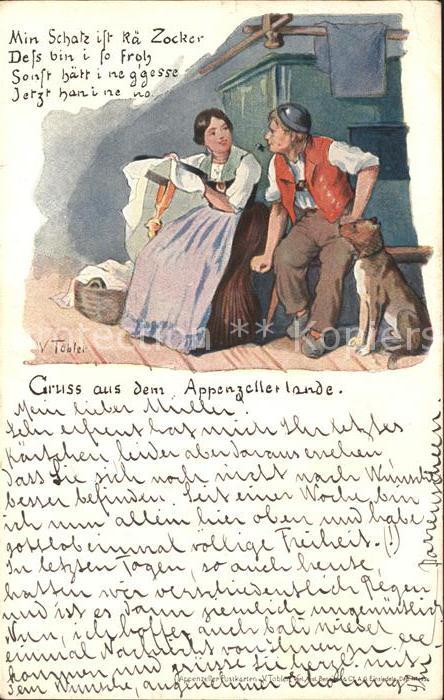 Min Schatz ist kä Zocker
Dess bin i so froh
Sonst hätt i ne g'gesse
Jetzt han i ne no.
V Tobler
protection ** kopiers
Gruss aus dem Appenzellerlande.
Mein lieber Müller!
Sehr erfreut hat mich Ihr letztes
Kärtchen, leider aber daraus ersehen
dass Sie sich noch nicht nach Wunsch
besser befinden. Seit einer Woche bin
ich nun allein hier oben und habe
gottlob einmal völlige Freiheit. (!)
In letzten Tagen, so auch heute,
hatten wir verschiedentlich Regen
und ist es dann ziemlich ungemütlich
Nun, ich hoffe, nun bald wieder
einmal Nachricht von Ihnen zu
kommen und grüsse Sie
dem Wunsch,
Appenzeller Postkarten. V. Tobler